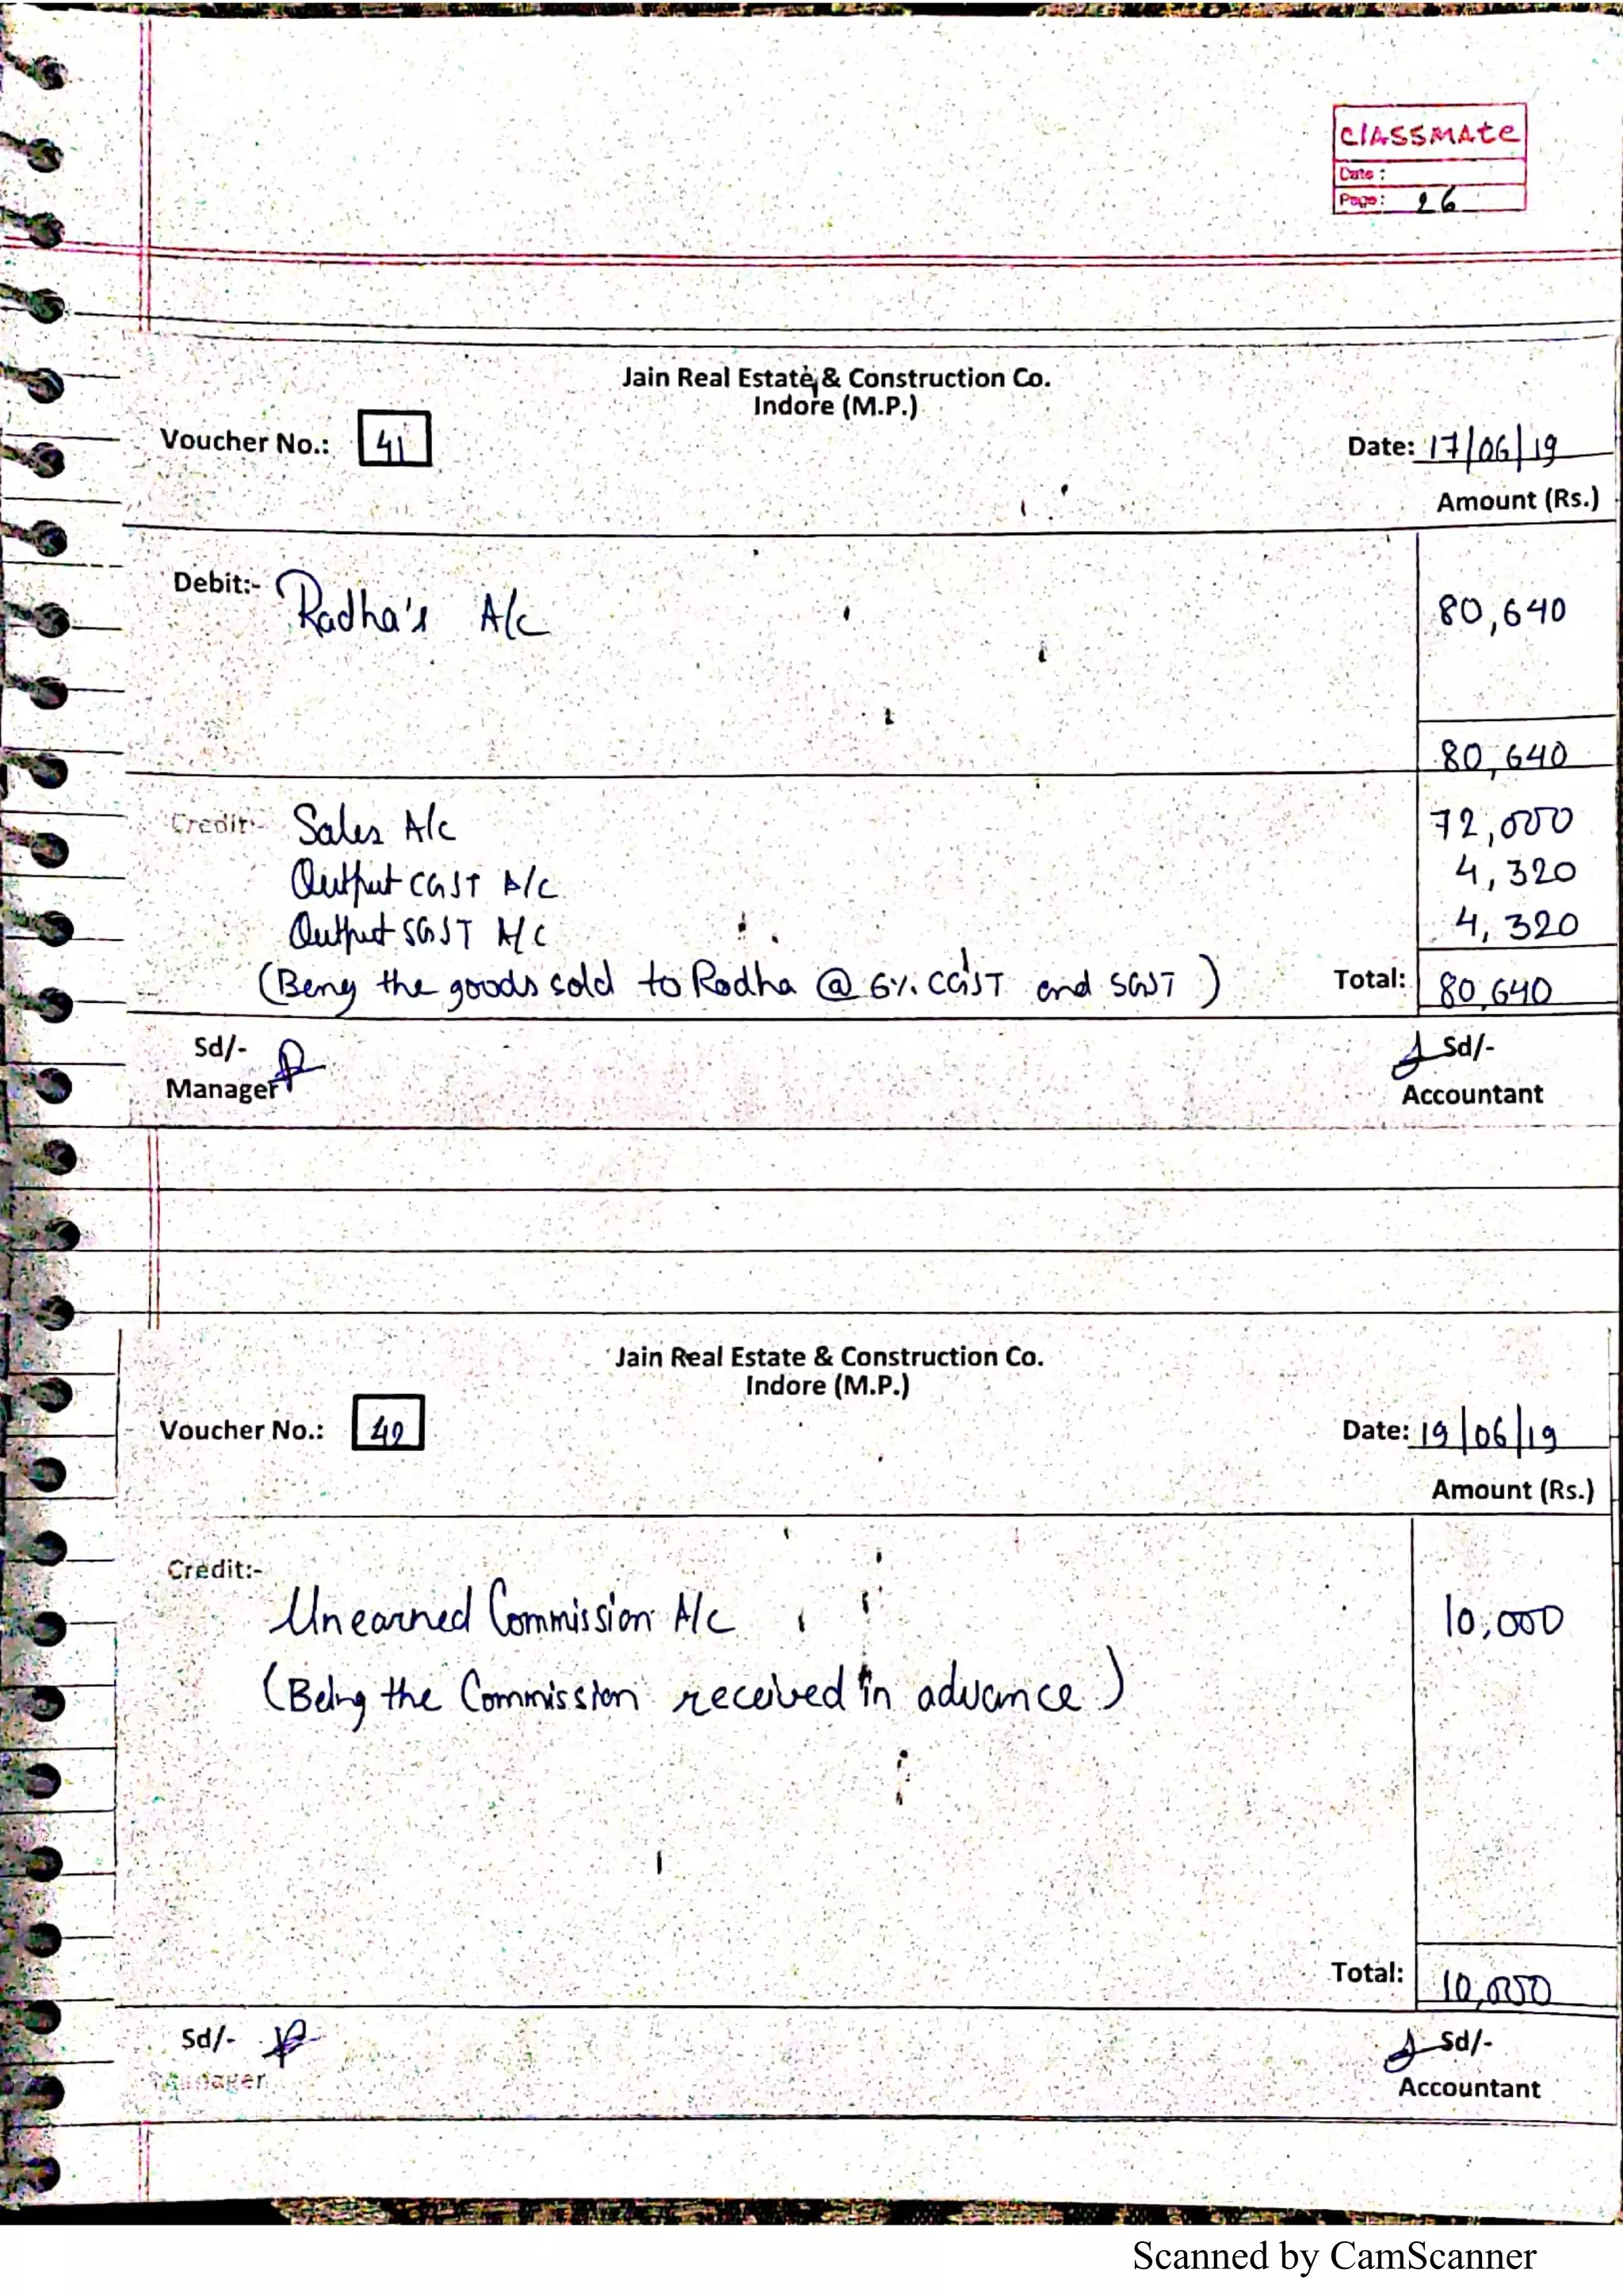 classmate
Date :
Page : 26
Jain Real Estate & Construction Co.
Indore (M.P.)
Voucher No.: 41
Date: 17/06/19
Amount (Rs.)
Debit:- Radha's A/c 80,640
80,640
Credit:- Sales A/c 72,000
Output CGST A/c 4,320
Output SGST A/c 4,320
(Being the goods sold to Radha @ 6% CGST and SGST) Total: 80,640
Sd/- Sd/-
Manager Accountant
Jain Real Estate & Construction Co.
Indore (M.P.)
Voucher No.: 42
Date: 19/06/19
Amount (Rs.)
Credit:-
Unearned Commission A/c 10,000
(Being the Commission received in advance)
Total: 10,000
Sd/- Sd/-
Manager Accountant
Scanned by CamScanner